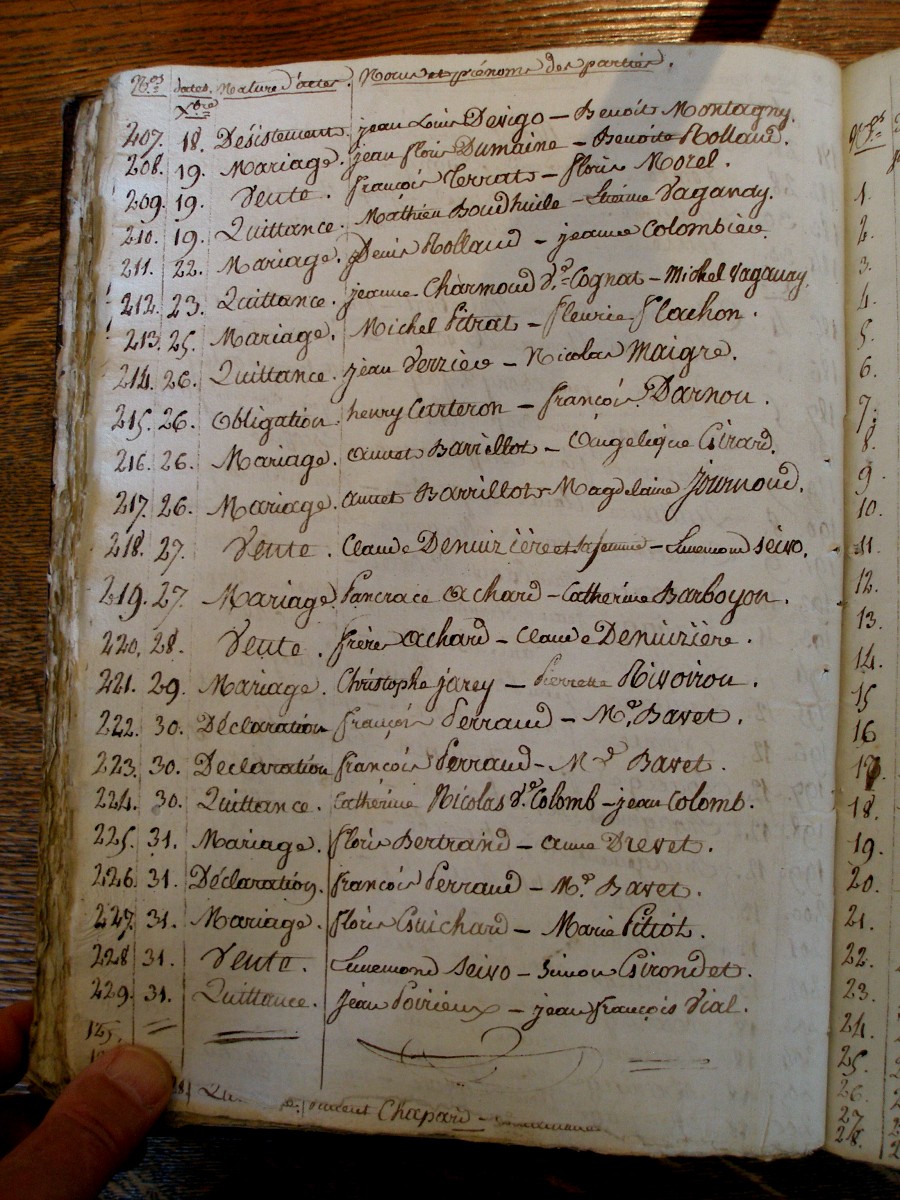 N.os dates. Nature d'actes. Noms et prénoms des parties.
Xbre
207. 18. Désistement. jean Louis Dervigo – Benoît Montagny.
208. 19. Mariage. jean floris Dumaine – Benoite Rolland.
209. 19. Vente. françois Terrat – floris Morel.
210. 19. Quittance. Mathieu Boudhuile – Vaganay.
211. 22. Mariage. Denis Rolland – jeanne Colombière.
212. 23. Quittance. jeanne Charmoud v.e Cognat – Michel Vaganay.
213. 25. Mariage. Michel Pitrat – fleurie flachon.
214. 26. Quittance. jean Verzière – Nicolas Maigre.
215. 26. Obligation henry Carteron – françois Darnou.
216. 26. Mariage. annet Barrillot – Angelique Girard.
217. 26. Mariage. annet Barrillot – Magdelaine journoud.
218. 27. Vente. Claude Denuizière et sa femme – Ennemond seivo.
219. 27. Mariage. Pancrace achard – Catherine Barboyon.
220. 28. Vente. frères achard – Claude Denuizière.
221. 29. Mariage. Christophe jarey – Pierrette Rivoirou.
222. 30. Déclaration françois Perraud – M.d Bavet.
223. 30. Déclaration françois Perraud – M.d Bavet.
224. 30. Quittance. Catherine Nicolas v.e Colomb – jean Colomb.
225. 31. Mariage. floris Bertrand – anne Drevet.
226. 31. Déclaration. françois Perraud – M.d Bavet.
227. 31. Mariage. floris Guichard – Marie Pitiot.
228. 31. Vente. Ennemond seivo – simon Girondet.
229. 31. Quittance. jean Poirieux – jean françois Vial.
125.
Chapard –
N.os
1.
2.
3.
4.
5.
6.
7.
8.
9.
10.
11.
12.
13.
14.
15
16
17.
18.
19.
20.
21.
22.
23.
24.
25.
26.
27.
28.